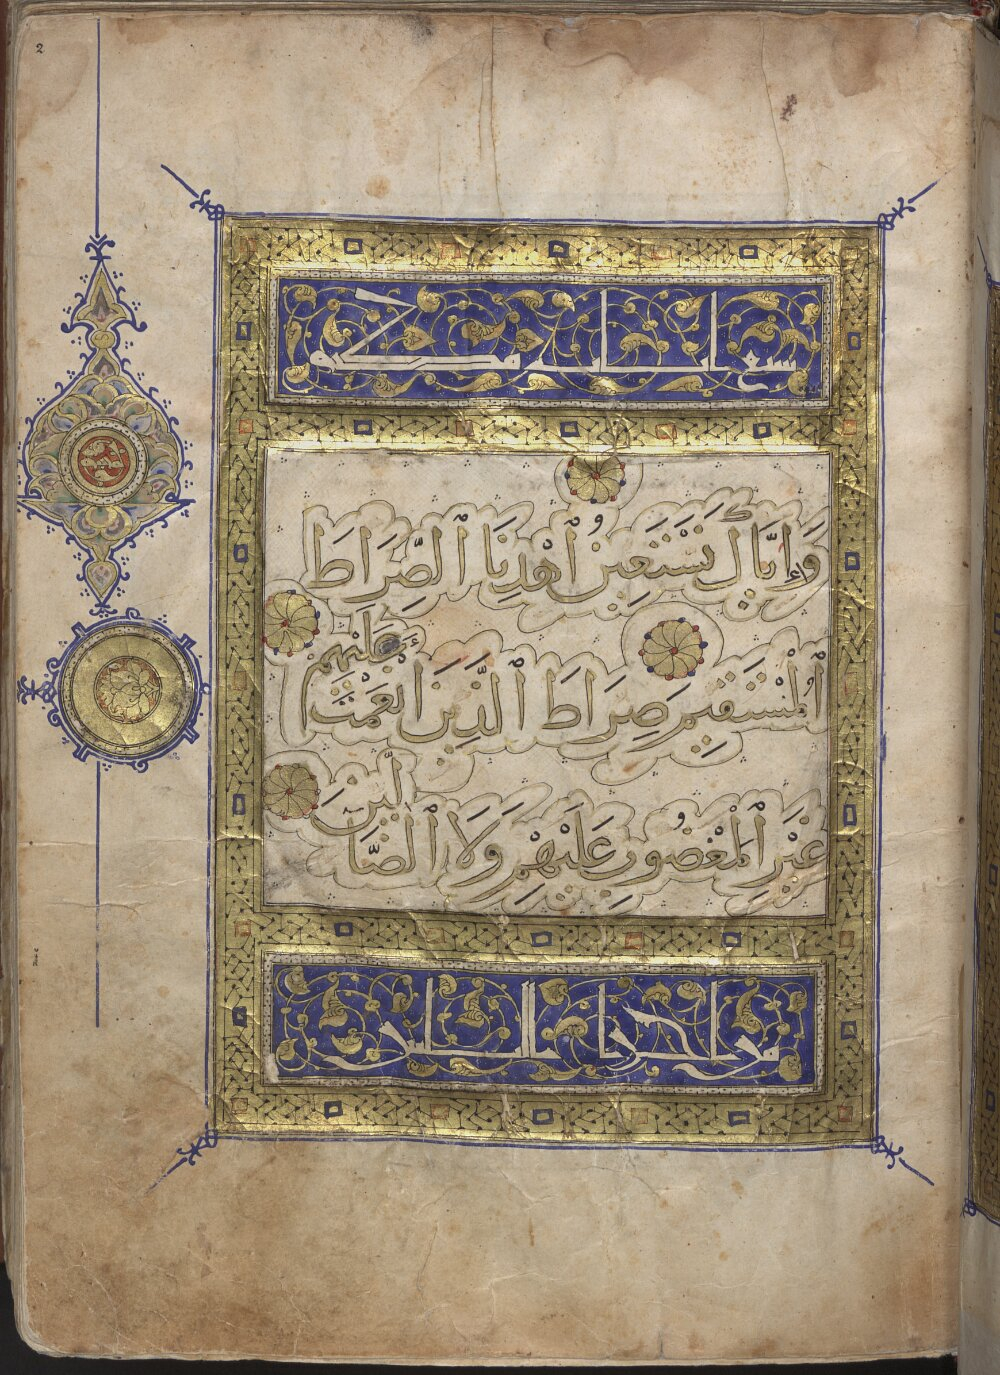 2
سبع ايات مكية
وَإِيَّاكَ نَسْتَعِينُ اهْدِنَا الصِّرَاطَ
الْمُسْتَقِيمَ صِرَاطَ الَّذِينَ أَنْعَمْتَ عَلَيْهِمْ
غَيْرِ الْمَغْضُوبِ عَلَيْهِمْ وَلَا الضَّالِّينَ